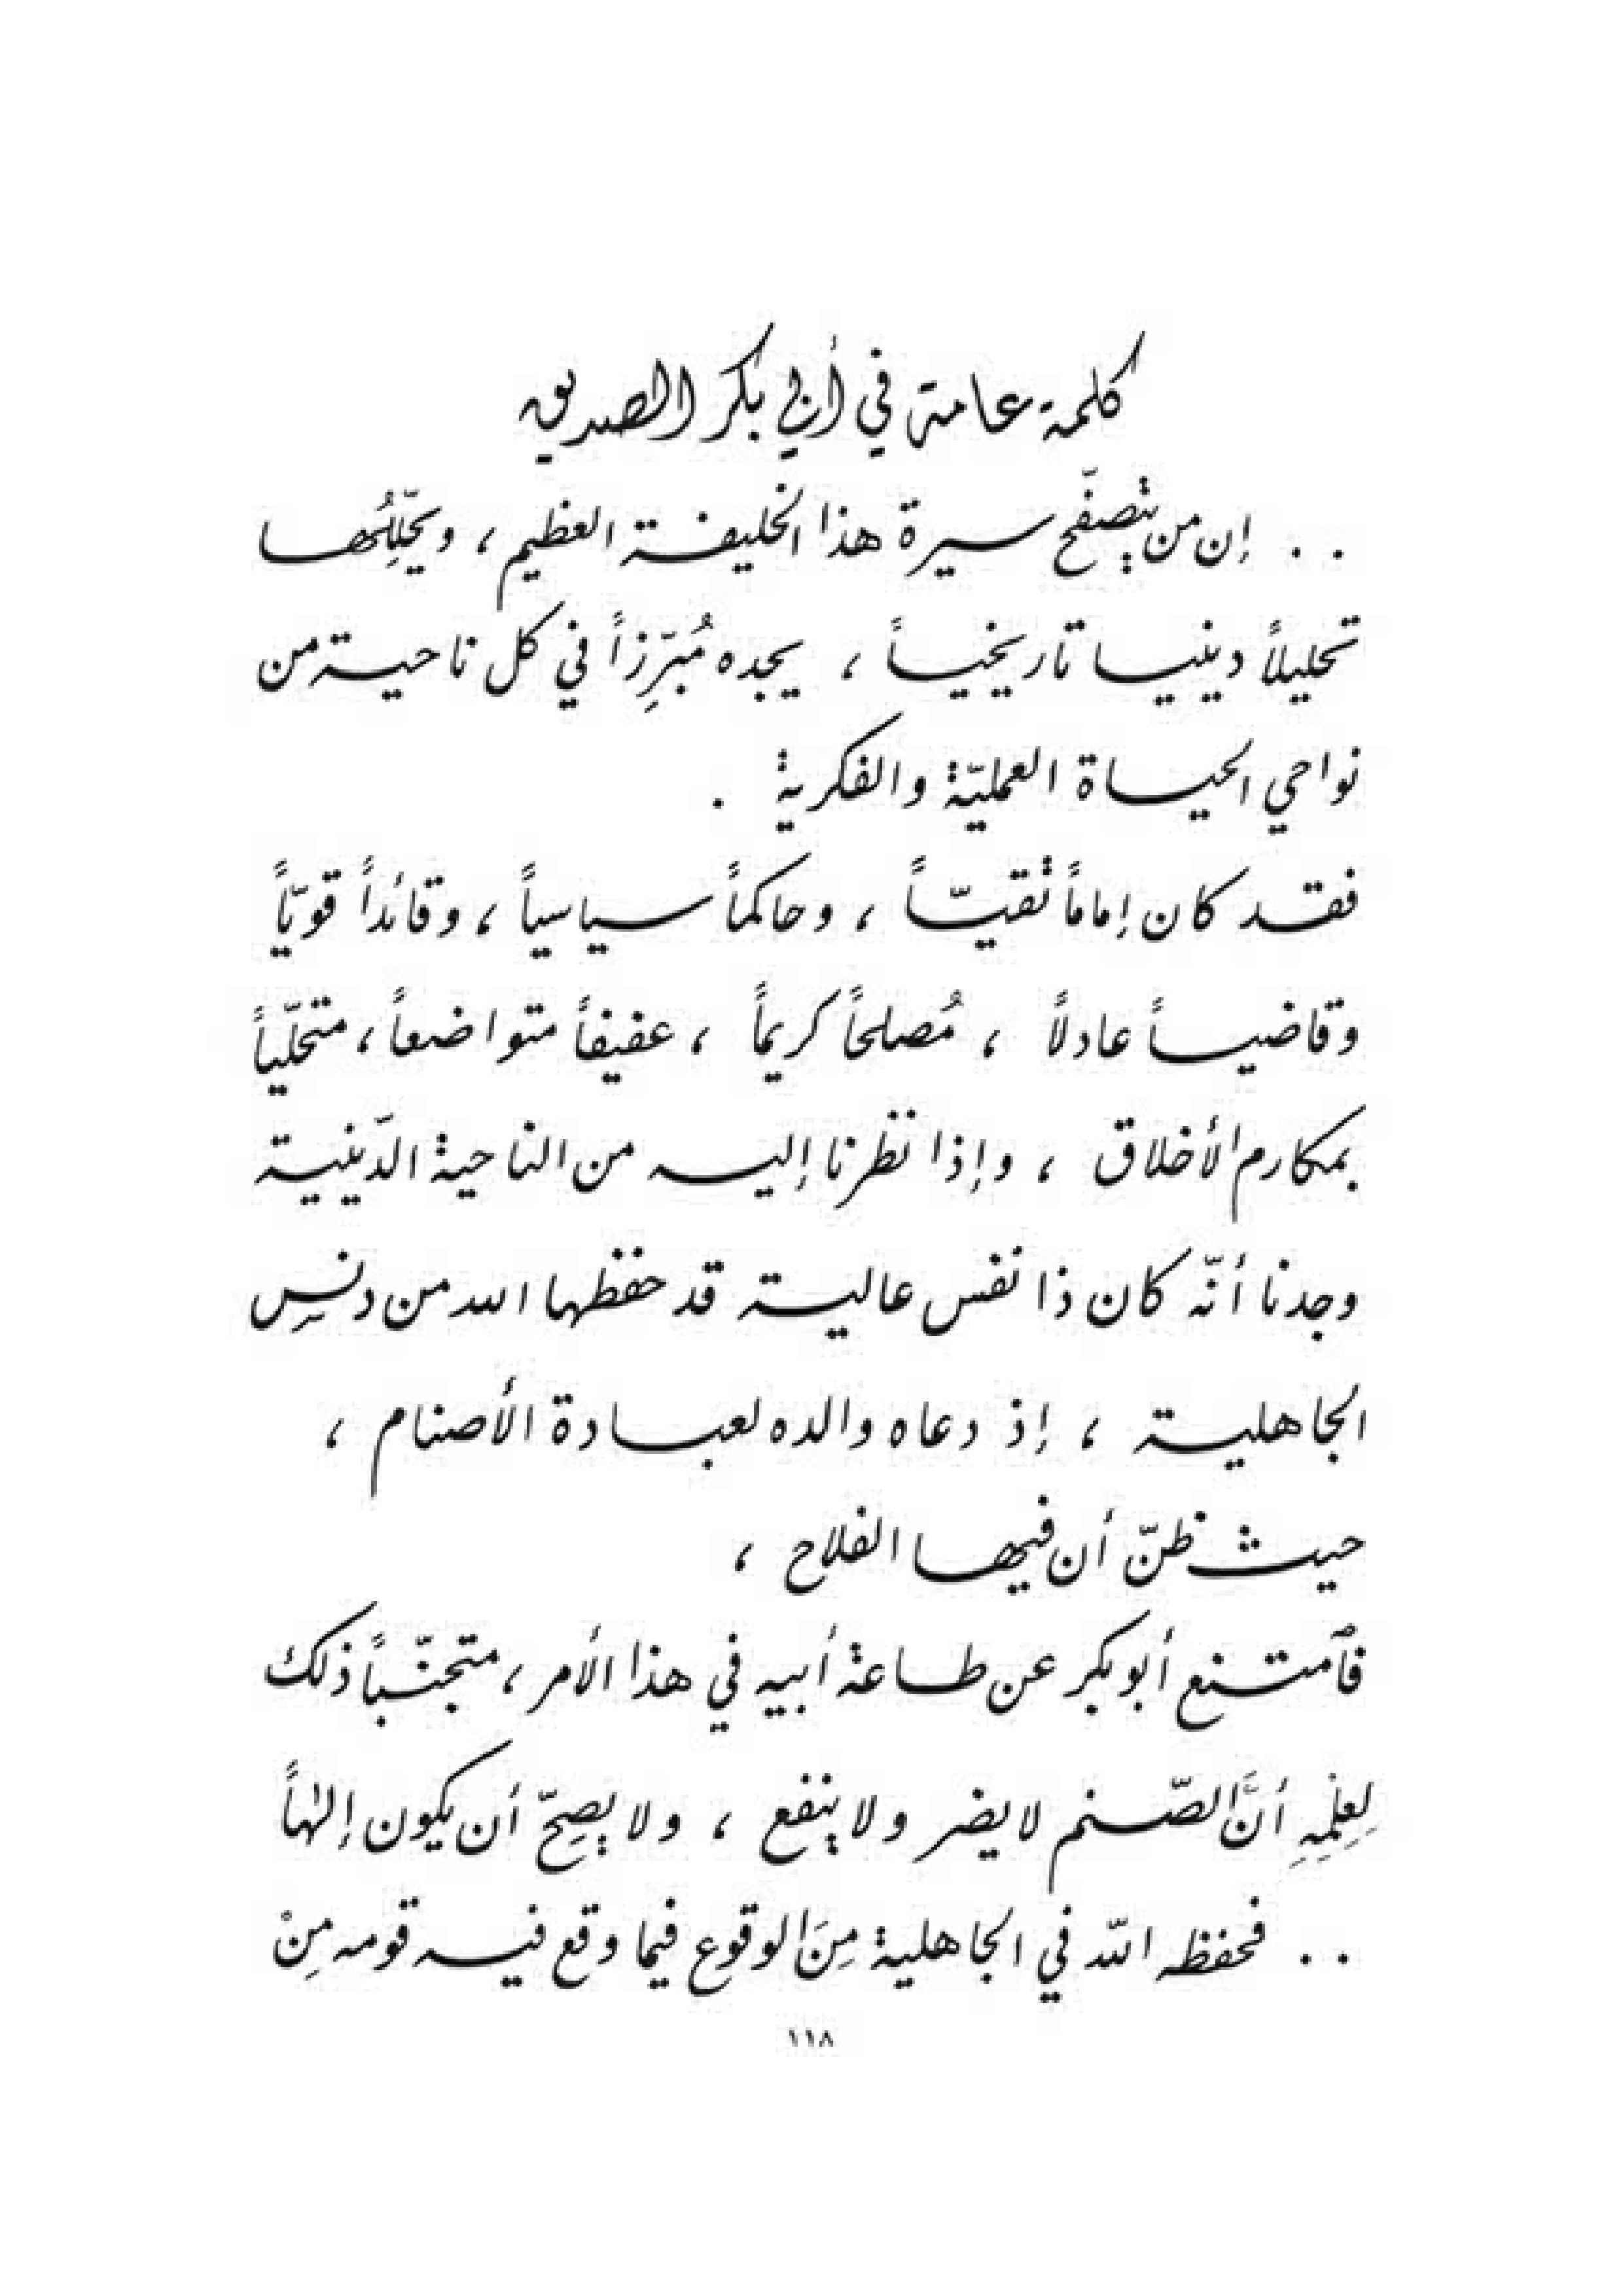 كلمة عامة في أبي بكر الصديق
. . إن من يتصفّح سيرة هذا الخليفة العظيم ، ويحلِّلُها
تحليلاً دينيا تاريخياً ، يجده مُبَرِّزاً في كل ناحية من
نواحي الحياة العمليّة والفكرية .
فقد كان إماماً تقيّاً ، وحاكماً سياسياً ، وقائداً قويّاً
وقاضياً عادلاً ، مُصلحاً كريماً ، عفيفاً متواضعاً ، متحلّياً
بمكارم الأخلاق ، وإذا نظرنا إليه من الناحية الدّينية
وجدنا أنّه كان ذا نفس عالية قد حفظها الله من دنسِ
الجاهلية ، إذ دعاه والده لعبادة الأصنام ،
حيث ظنّ أن فيها الفلاح ،
فٱمتنع أبو بكر عن طاعة أبيه في هذا الأمر ، متجنّباً ذلك
لِعِلْمِهِ أنَّ الصّنم لا يضر ولا ينفع ، ولا يصِحّ أن يكون إلٰهاً
. . فحفظه اللّه في الجاهلية مِنَ الوقوع فيما وقع فيه قومه مِنْ
١١٨